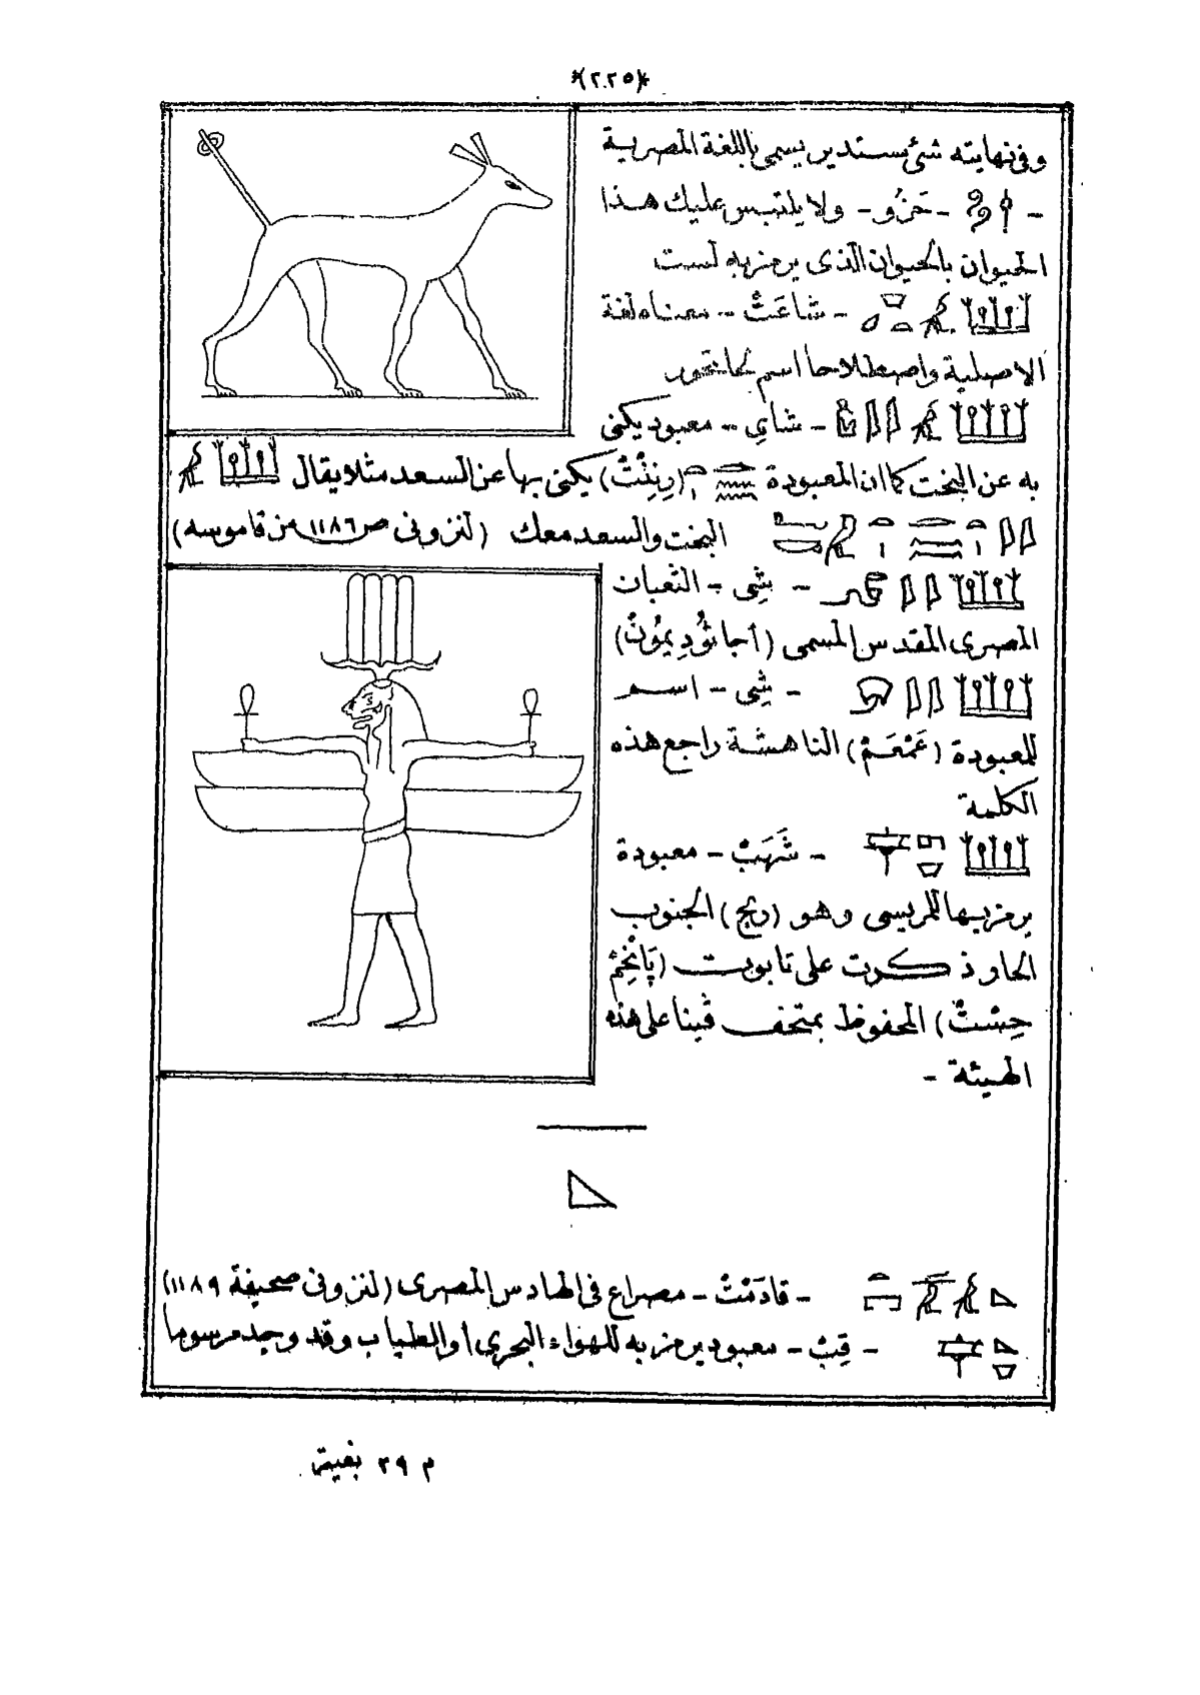 *(٢٢٥)*
وفى نهايته شئ مستدير يسمى باللغة المصرية
- حَزُو - ولا يلتبس عليك هذا
الحيوان بالحيوان الذى يرمز به لست
- شاعَتْ - معناه لغة
الاصلية واصطلاحا اسم
- شاىِ - معبود يكنى
به عن البخت كما ان المعبودة (رِنِنْتْ) يكنى بها عن السعد مثلا يقال
البخت والسعد معك (لنزونى ص ١١٨٦ من قاموسه)
- شِى - الثعبان
المصرى المقدس المسمى (أجاثُودِيمُونْ)
- شِى - اسم
للمعبودة (عَمْعَمْ) الناهشة راجع هذه
الكلمة
- شَهَبْ - معبودة
يرمز بها للمريسى وهو (ريح) الجنوب
الحار ذكرت على تابوت (پَانْخِمْ
حِسْتْ) المحفوظ بمتحف ڤينا على هذه
الهيئة -
- قادَمْتْ - مصراع فى الهادس المصرى (لنزونى صحيفة ١١٨٩)
- قِبْ - معبود يرمز به للهواء البحرى او الطياب وقد وجد مرسوما
م ٢٩ بغية